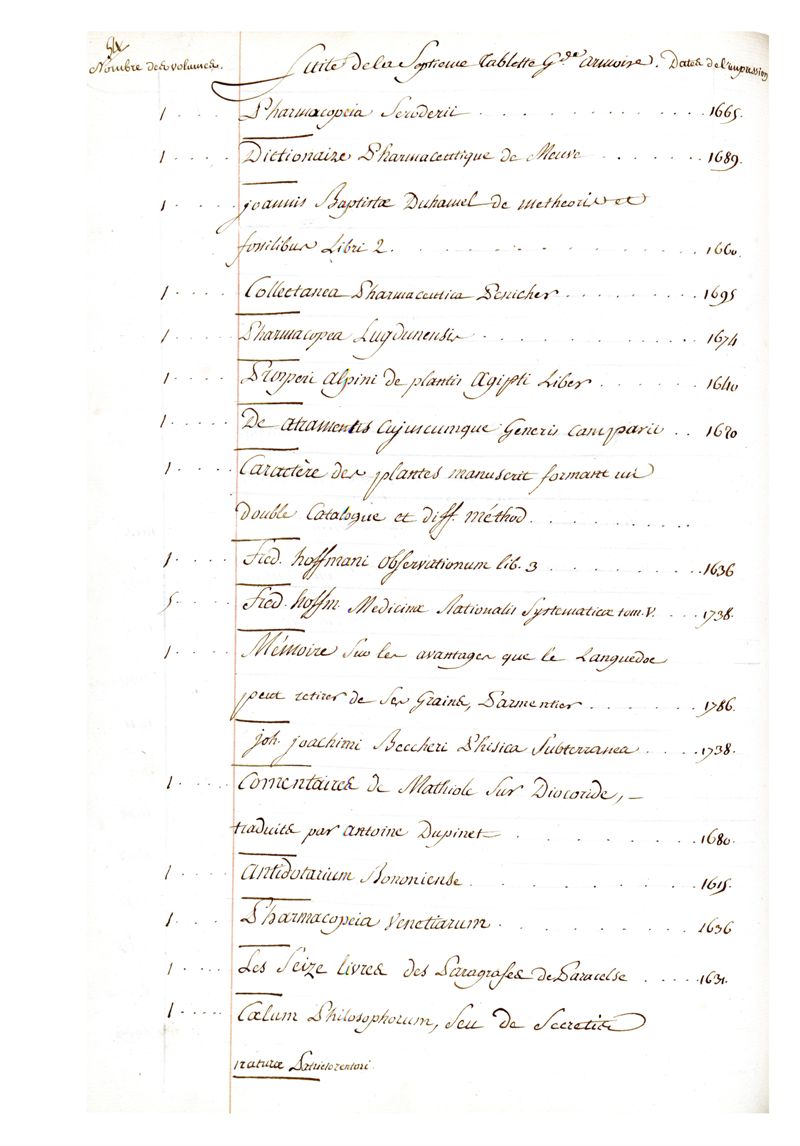 Nombre des volumes. Suite de la Septieme Tablette G.de armoire. Dates de l'impression
1 . . . . Pharmacopeia Seroderii . . . . . . . . . . . . 1665.
1 . . . . Dictionaire Pharmaceutique de Meuve . . . . . . 1689.
1 . . . . joannis Baptistæ Duhamel de metheoris et
fossilibus Libri 2. . . . . . . . . . . . 1660.
1 . . . . Collectanea Pharmaceutica Penicher . . . . . . . . 1695
1 . . . . Pharmacopea Lugdunensis . . . . . . . . . . 1674
1 . . . . Prosperi alpini de plantis Ægipti Liber . . . . . . 1640
1 . . . . De atramentis Cujuscumque Generis Caniparii . . 1620
1 . . . . Caractère des plantes manuscrit formant un
double Catalogue et diff. méthod. . . . . . . . .
1 . . . . Fred. hoffmani observationum lib. 3 . . . . . . . . 1636
5 . . . . Fred. hoffm. Medicinæ Rationalis Systematicæ tom. V. . . . 1738.
1 . . . . Mémoire Sur les avantages que le Languedoc
peut retirer de Ses Grains, Parmentier . . . . . . 1786.
joh. joachimi Beccheri Phisica Subterranea . . . . 1738.
1 . . . . Comentaires de Mathiole Sur Diocoride, –
traduits par antoine Dupinet . . . . . . . 1680.
1 . . . . antidotarium Bononiense . . . . . . . . . 1615.
1 . . . . Pharmacopeia Venetiarum . . . . . . . . . 1636
1 . . . . Les Seize livres des Paragrafes de Paracelse . . . . 1631.
1 . . . . Cœlum Philosophorum, Seu de Secretis
naturæ